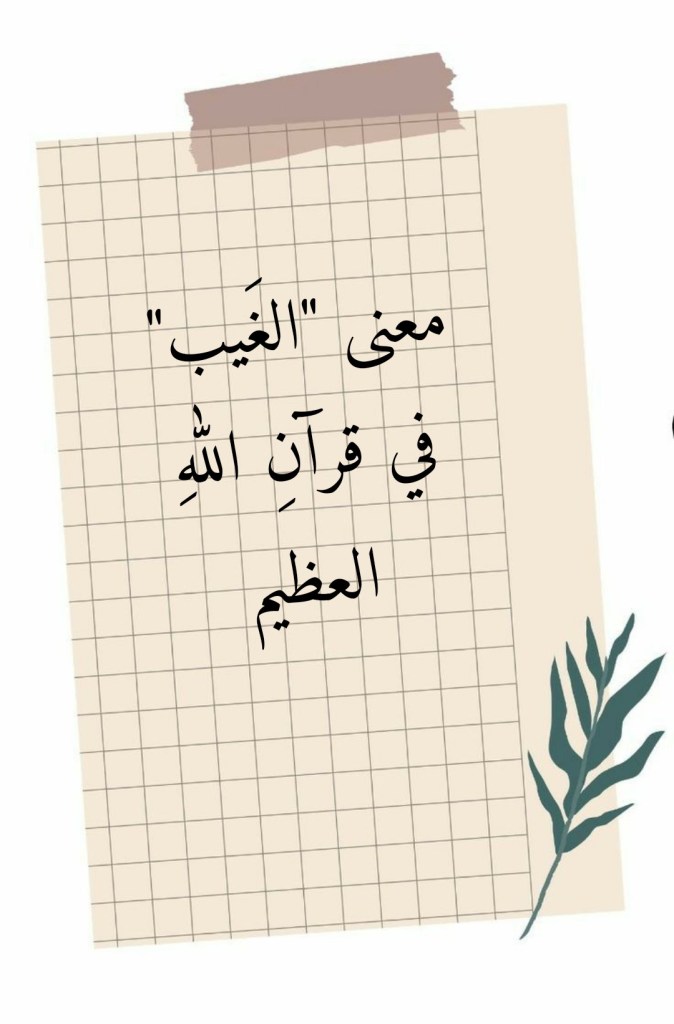 معنى "الغَيب"
في قرآنِ اللهِ
العظيم